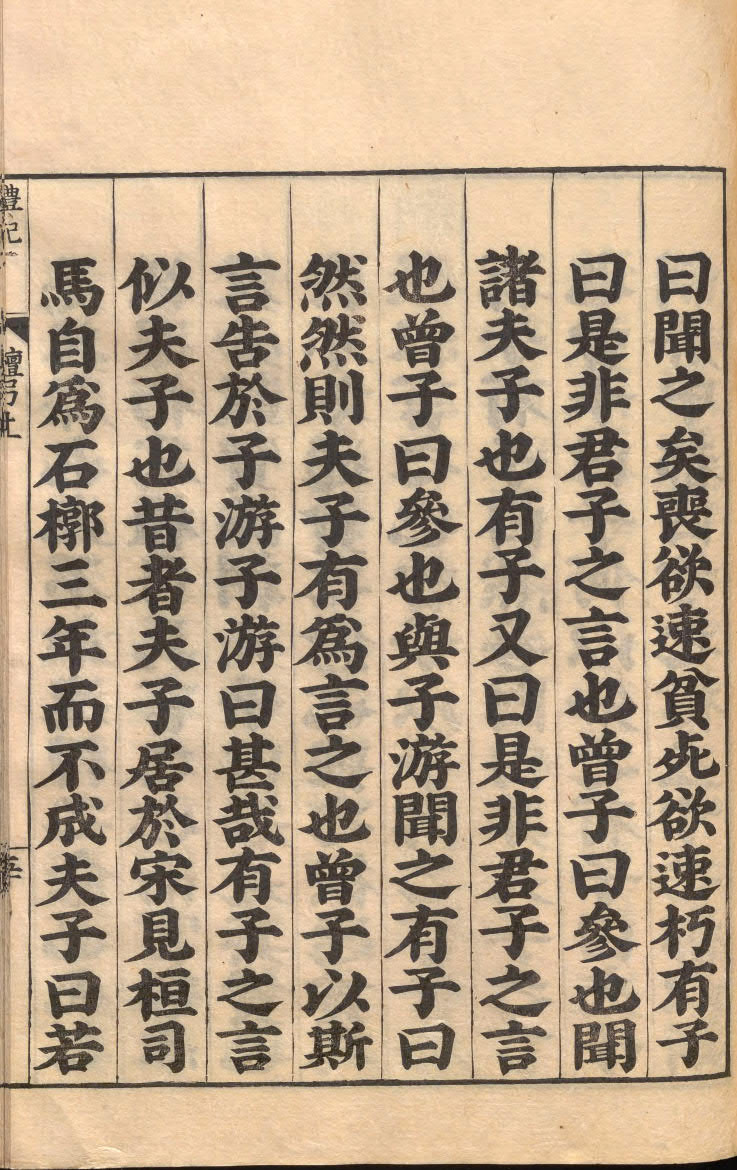 曰聞之矣喪欲速貧死欲速朽有子
曰是非君子之言也曾子曰參也聞
諸夫子也有子又曰是非君子之言
也曾子曰參也與子游聞之有子曰
然然則夫子有爲言之也曾子以斯
言告於子游子游曰甚哉有子之言
似夫子也昔者夫子居於宋見桓司
馬自爲石槨三年而不成夫子曰若
禮記
檀弓上